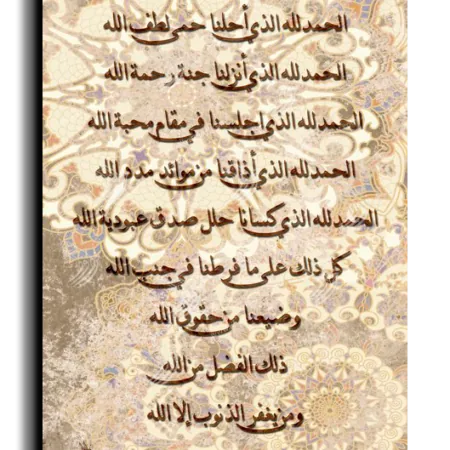 الحمد لله الذي أحلنا حمى لطف الله
الحمد لله الذي أنزلنا جنة رحمة الله
الحمد لله الذي اجلسنا في مقام محبة الله
الحمد لله الذي أذاقنا من موائد مدد الله
الحمد لله الذي كسانا حلل صدق عبودية الله
كل ذلك على ما فرطنا في جنب الله
وضيعنا من حقوق الله
ذلك الفضل من الله
ومن يغفر الذنوب إلا الله